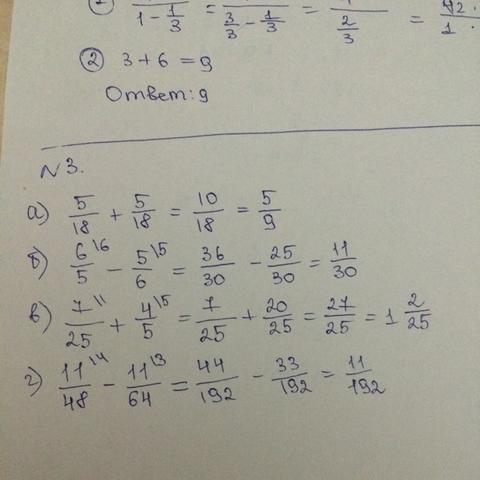 ② 1 - 1/3 = 3/3 - 1/3 = 2/3 =
② 3 + 6 = 9
Ответ: 9
N 3.
а) 5/18 + 5/18 = 10/18 = 5/9
б) 6/5 \6 - 5/6 \5 = 36/30 - 25/30 = 11/30
в) 7/25 \1 + 4/5 \5 = 7/25 + 20/25 = 27/25 = 1 2/25
г) 11/48 \4 - 11/64 \3 = 44/192 - 33/192 = 11/192